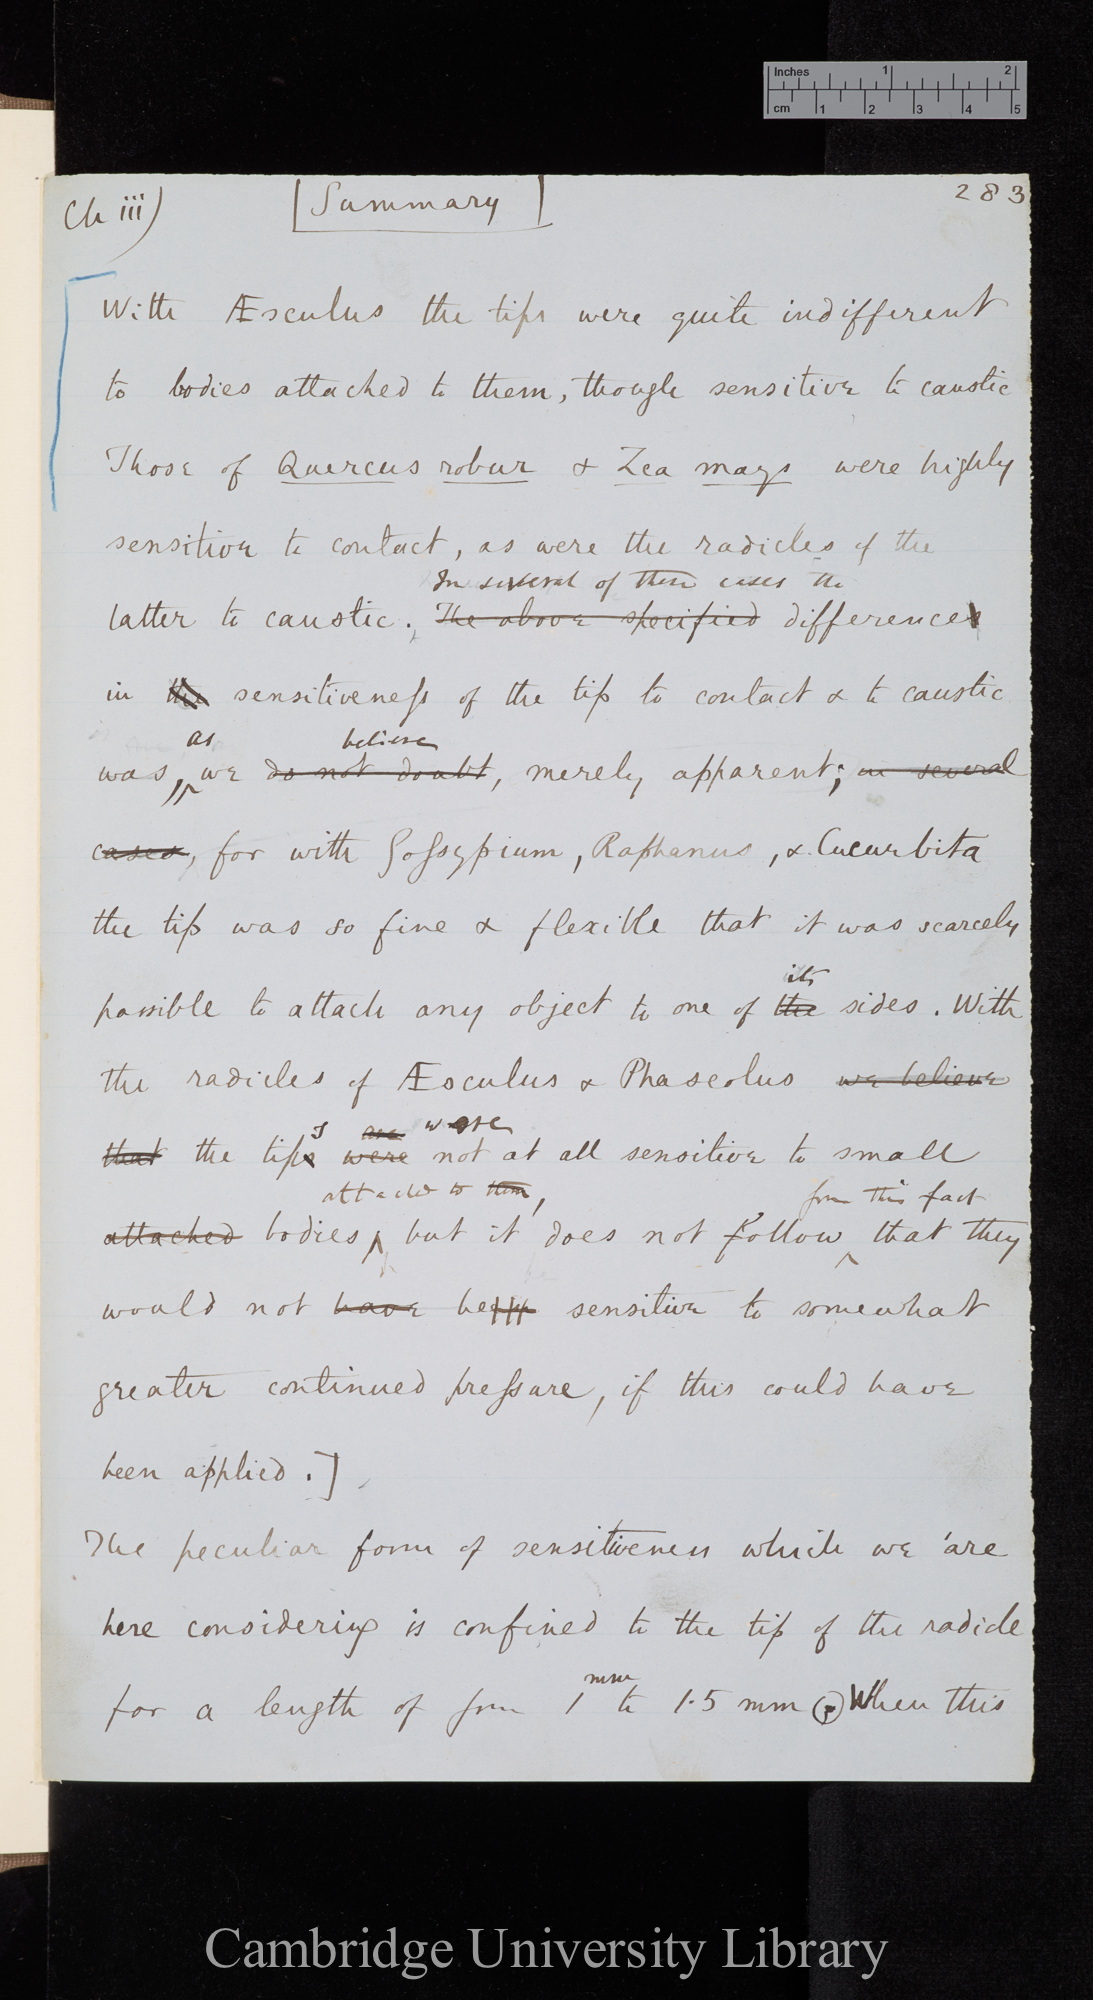 Inches 1 2
cm 1 2 3 4 5
Ch iii) [Summary] 283
With Æsculus the tips were quite indifferent
to bodies attached to them, though sensitive to caustic
Those of Quercus robur & Zea mays were highly
sensitive to contact, as were the radicles of the
In several of these cases the
latter to caustic. The above specified differences
in the sensitiveness of the tip to contact & to caustic
as believe
was, we do not doubt, merely apparent; in several
cases, for with Gossypium, Raphanus, & Cucurbita
the tip was so fine & flexible that it was scarcely
its
possible to attach any object to one of the sides. With
the radicles of Æsculus & Phaseolus we believe
s are were
that the tips were not at all sensitive to small
attached to them, from this fact
attached bodies, but it does not follow that they
would not have been sensitive to somewhat
greater continued pressure, if this could have
been applied.]
The peculiar form of sensitiveness which we are
here considering is confined to the tip of the radicle
mm
for a length of from 1 to 1.5 mm. When this
Cambridge University Library